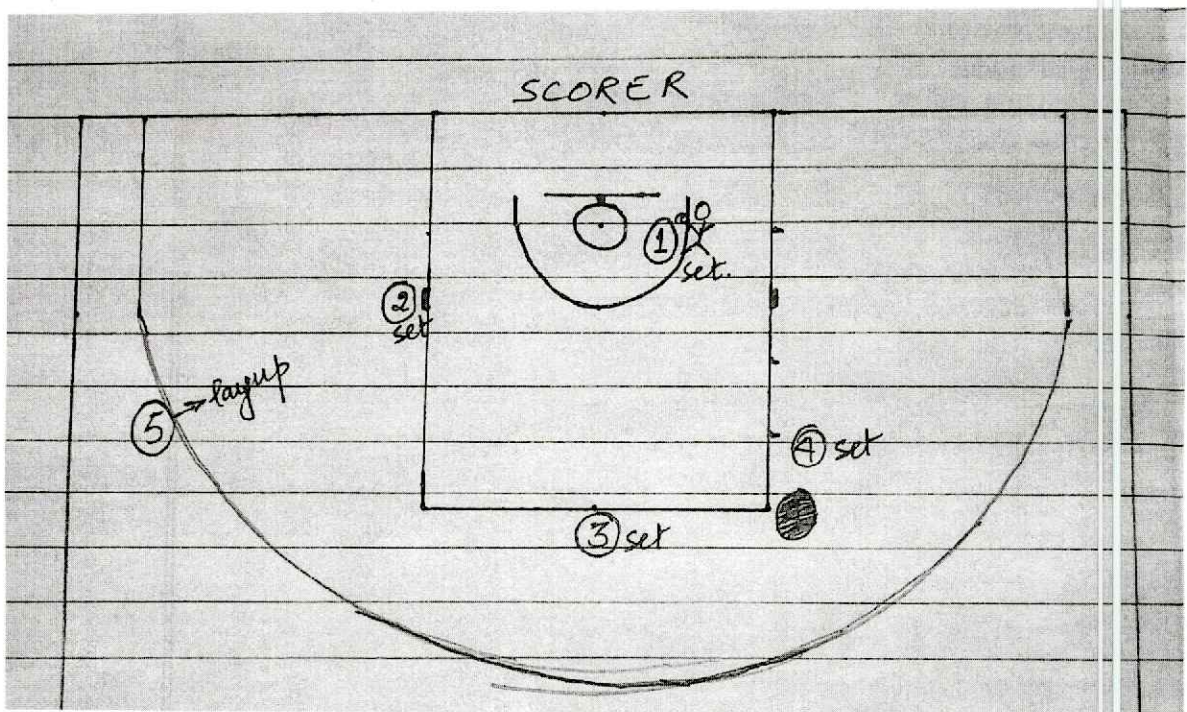 SCORER
① set.
② set
⑤ → layup
④ set
③ set